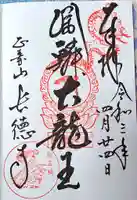 奉拝
令和二年
四月廿四日
大龍王
正壽山
長徳寺